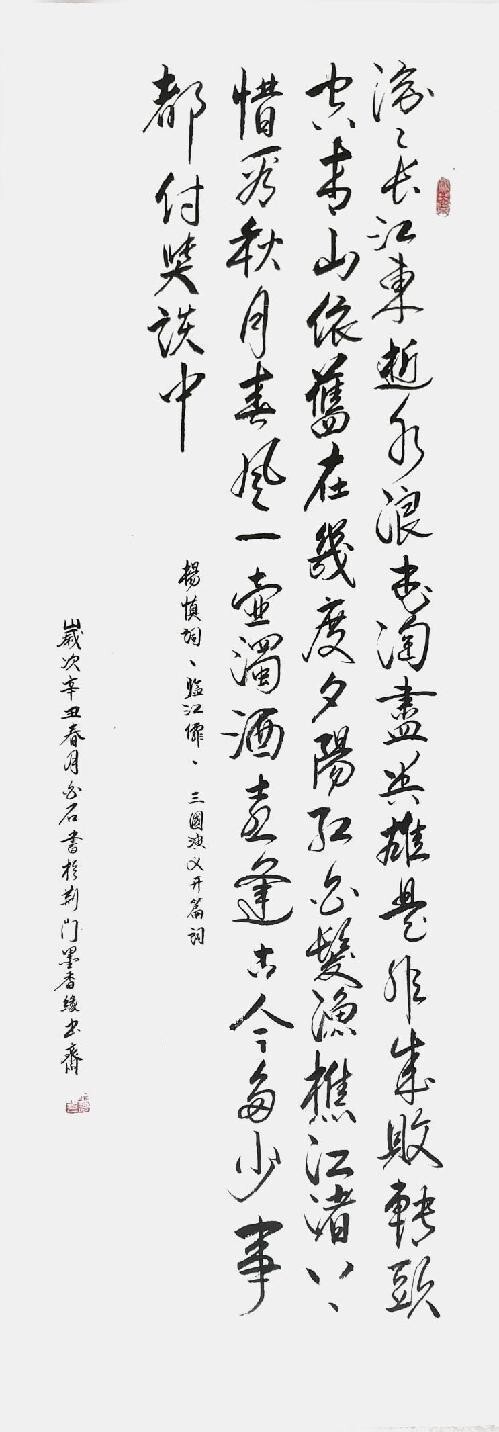 滚〻长江東逝水浪花淘盡英雄是非成敗轉頭
空青山依舊在幾度夕陽红白髮漁樵江渚上、
慣看秋月春风一壶濁酒喜逢古今多少事
都付笑談中
楊慎词、臨江僊、三國演义开篇词
歲次辛丑春月白石書於荆门墨香缘书齋